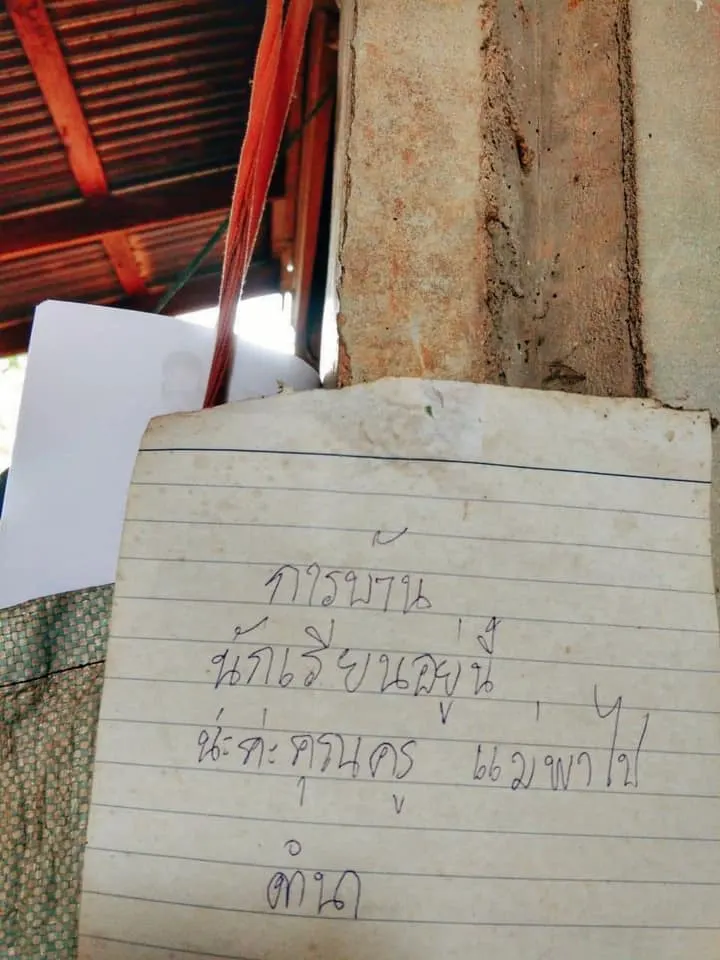 การบ้าน
นักเรียนอยู่นี่
น่ะค่ะคุณครู แม่พาไป
ดำนา